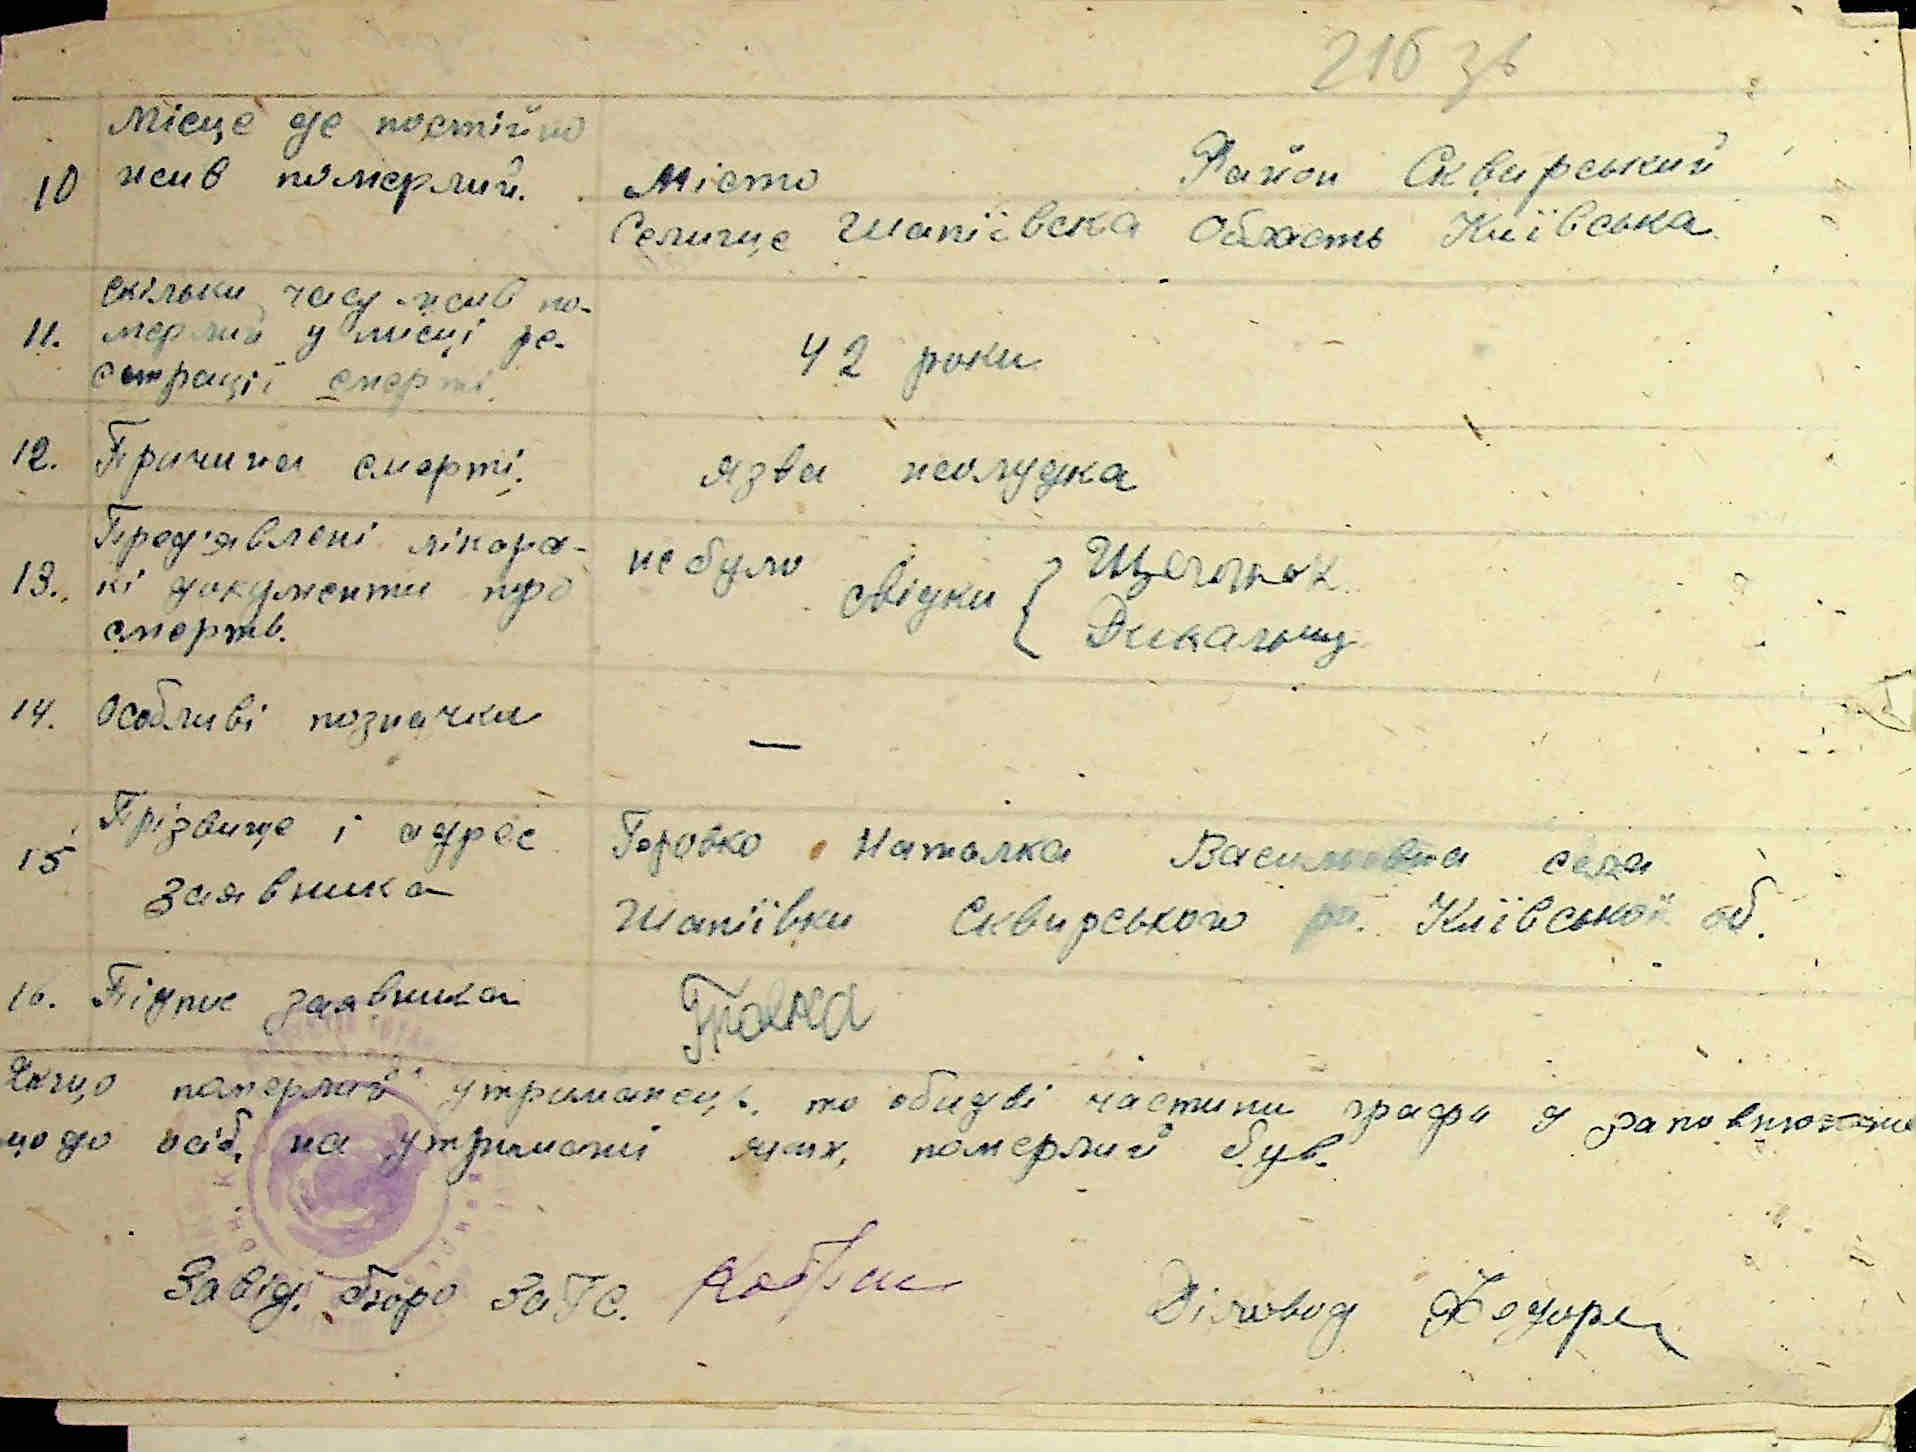 216 зв
Місце де постійно
10 жив померлий. Місто Район Сквирський
Селище Шапіївска Область Київська
скільки часу жив по-
11. мерлий у місці ре-
єстрації смерті 42 роки
12. Причина смерті. язва жолудка
Пред'явлені лікарс-
13. кі документи про не було свідки
смерть. Дикальчу
14. Особливі позначки —
15 Прізвище і адрес Наталка Василівна села
заявника Шапіївки Сквирського ра. Київської об.
16. Підпис заявника
Якщо померлий утриманець, то обидві частини графи 9 заповнюють
щодо осіб, на утримані яких, померлий був.
Завід. бюро ЗаГС. Діловод